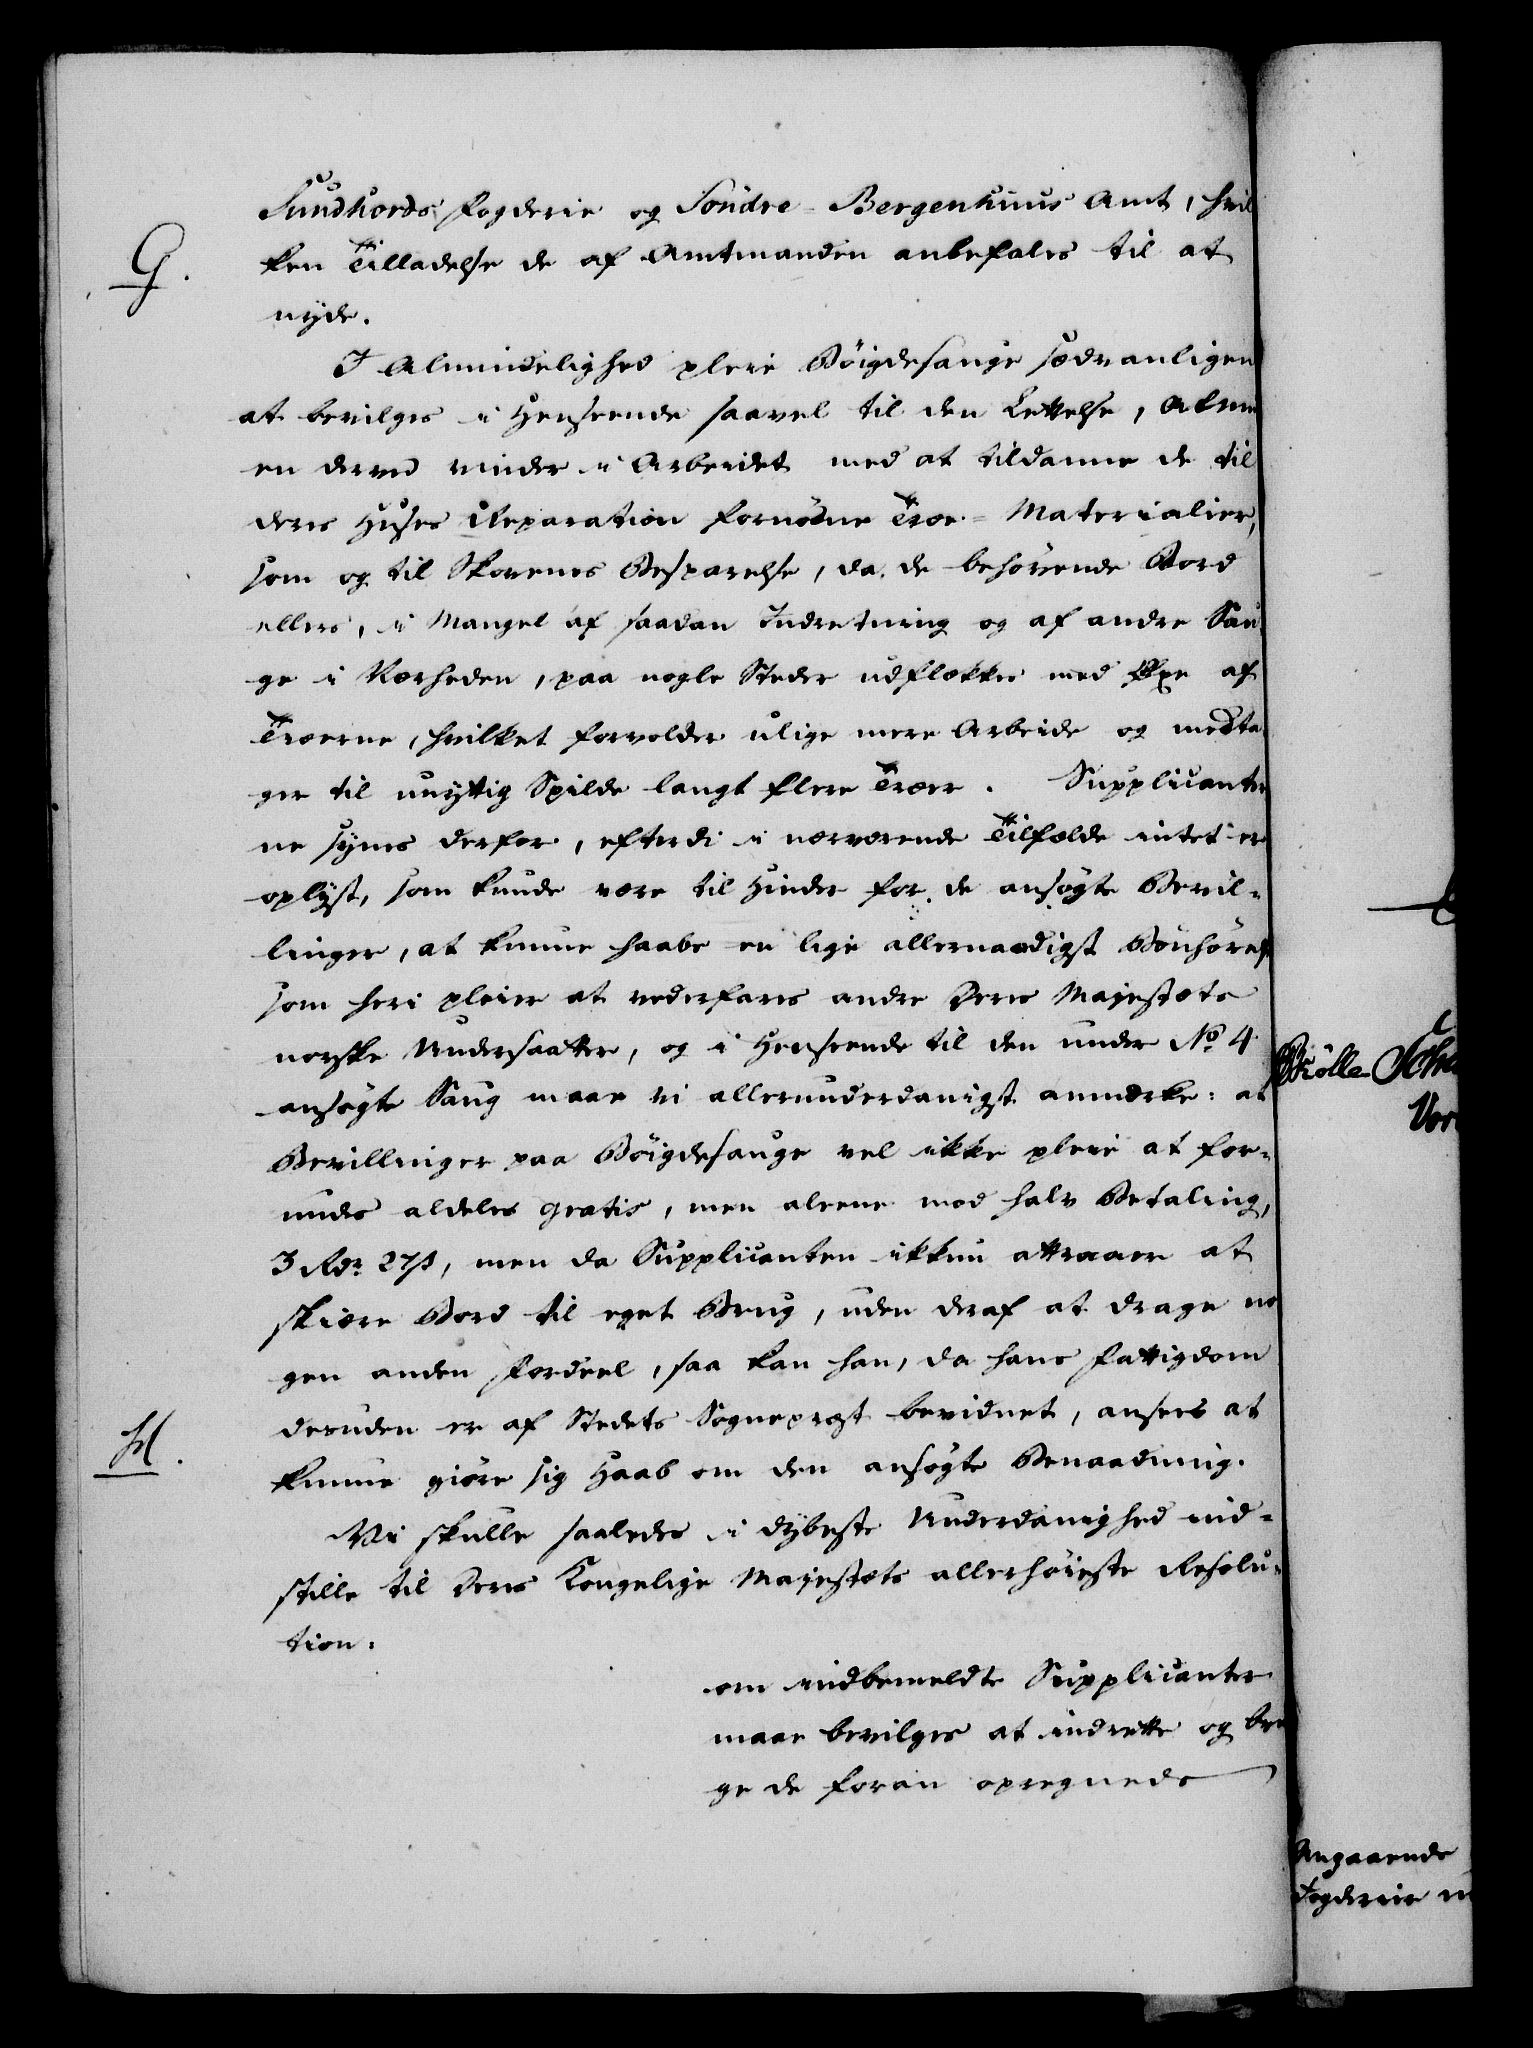 Sundhords Fogderie og Söndre-Bergenhuus Amt, hvil
G.
ken Tilladelse de af Amtmanden anbefales til at
nyde.
I Almindelighed pleie Böigdesauge sædvanligen
at bevilges i Henseende saavel til den Lettelse, Almu
en derved vinder i Arbeidet med at tildanne de til
deres Huses Reparation fornödne Træe-Materialier,
som og til Skovenes Besparelse, da de behövende Bord
ellers, i Mangel af saadan Indretning og af andre Sau
ge i Nærheden, paa nogle Steder udflækkes med Øxe af
Træerne, hvilket forvolder ulige mere Arbeide og medta
ger til unyttig Spilde langt flere Træer. Supplicanter
ne synes derfor, efterdi i nærværende Tilfælde intet er
oplyst, som kunde være til Hinder for de ansøgte Bevil-
linger, at kunne haabe en lige allernaadigst Bönhörelse
som heri pleier at vederfares andre Deres Majestæts
norske Undersaatter, og i Henseende til den under No. 4
ansøgte Saug maae vi allerunderdanigst anmærke: at
Bevillinger paa Böigdesauge vel ikke pleie at for-
undes aldeles gratis, men aleene mod halv Betaling,
3 Rdr. 27 ß, men da Supplicanten ikkun attraaer at
skiære Bord til eget Brug, uden deraf at drage no
gen anden Fordeel, saa kan han, da hans Fattigdom
desuden er af Stedets Sognepræst bevidnet, ansees at
H.
kunne giöre sig Haab om den ansøgte Benaadning.
Vi skulle saaledes i dybeste Underdanighed ind-
stille til Deres Kongelige Majestæts allerhöieste Resolu-
tion:
om indbemeldte Supplicanter
maae bevilges at indrette og bru
ge de foran opregnede
Angaaende
Fogderie